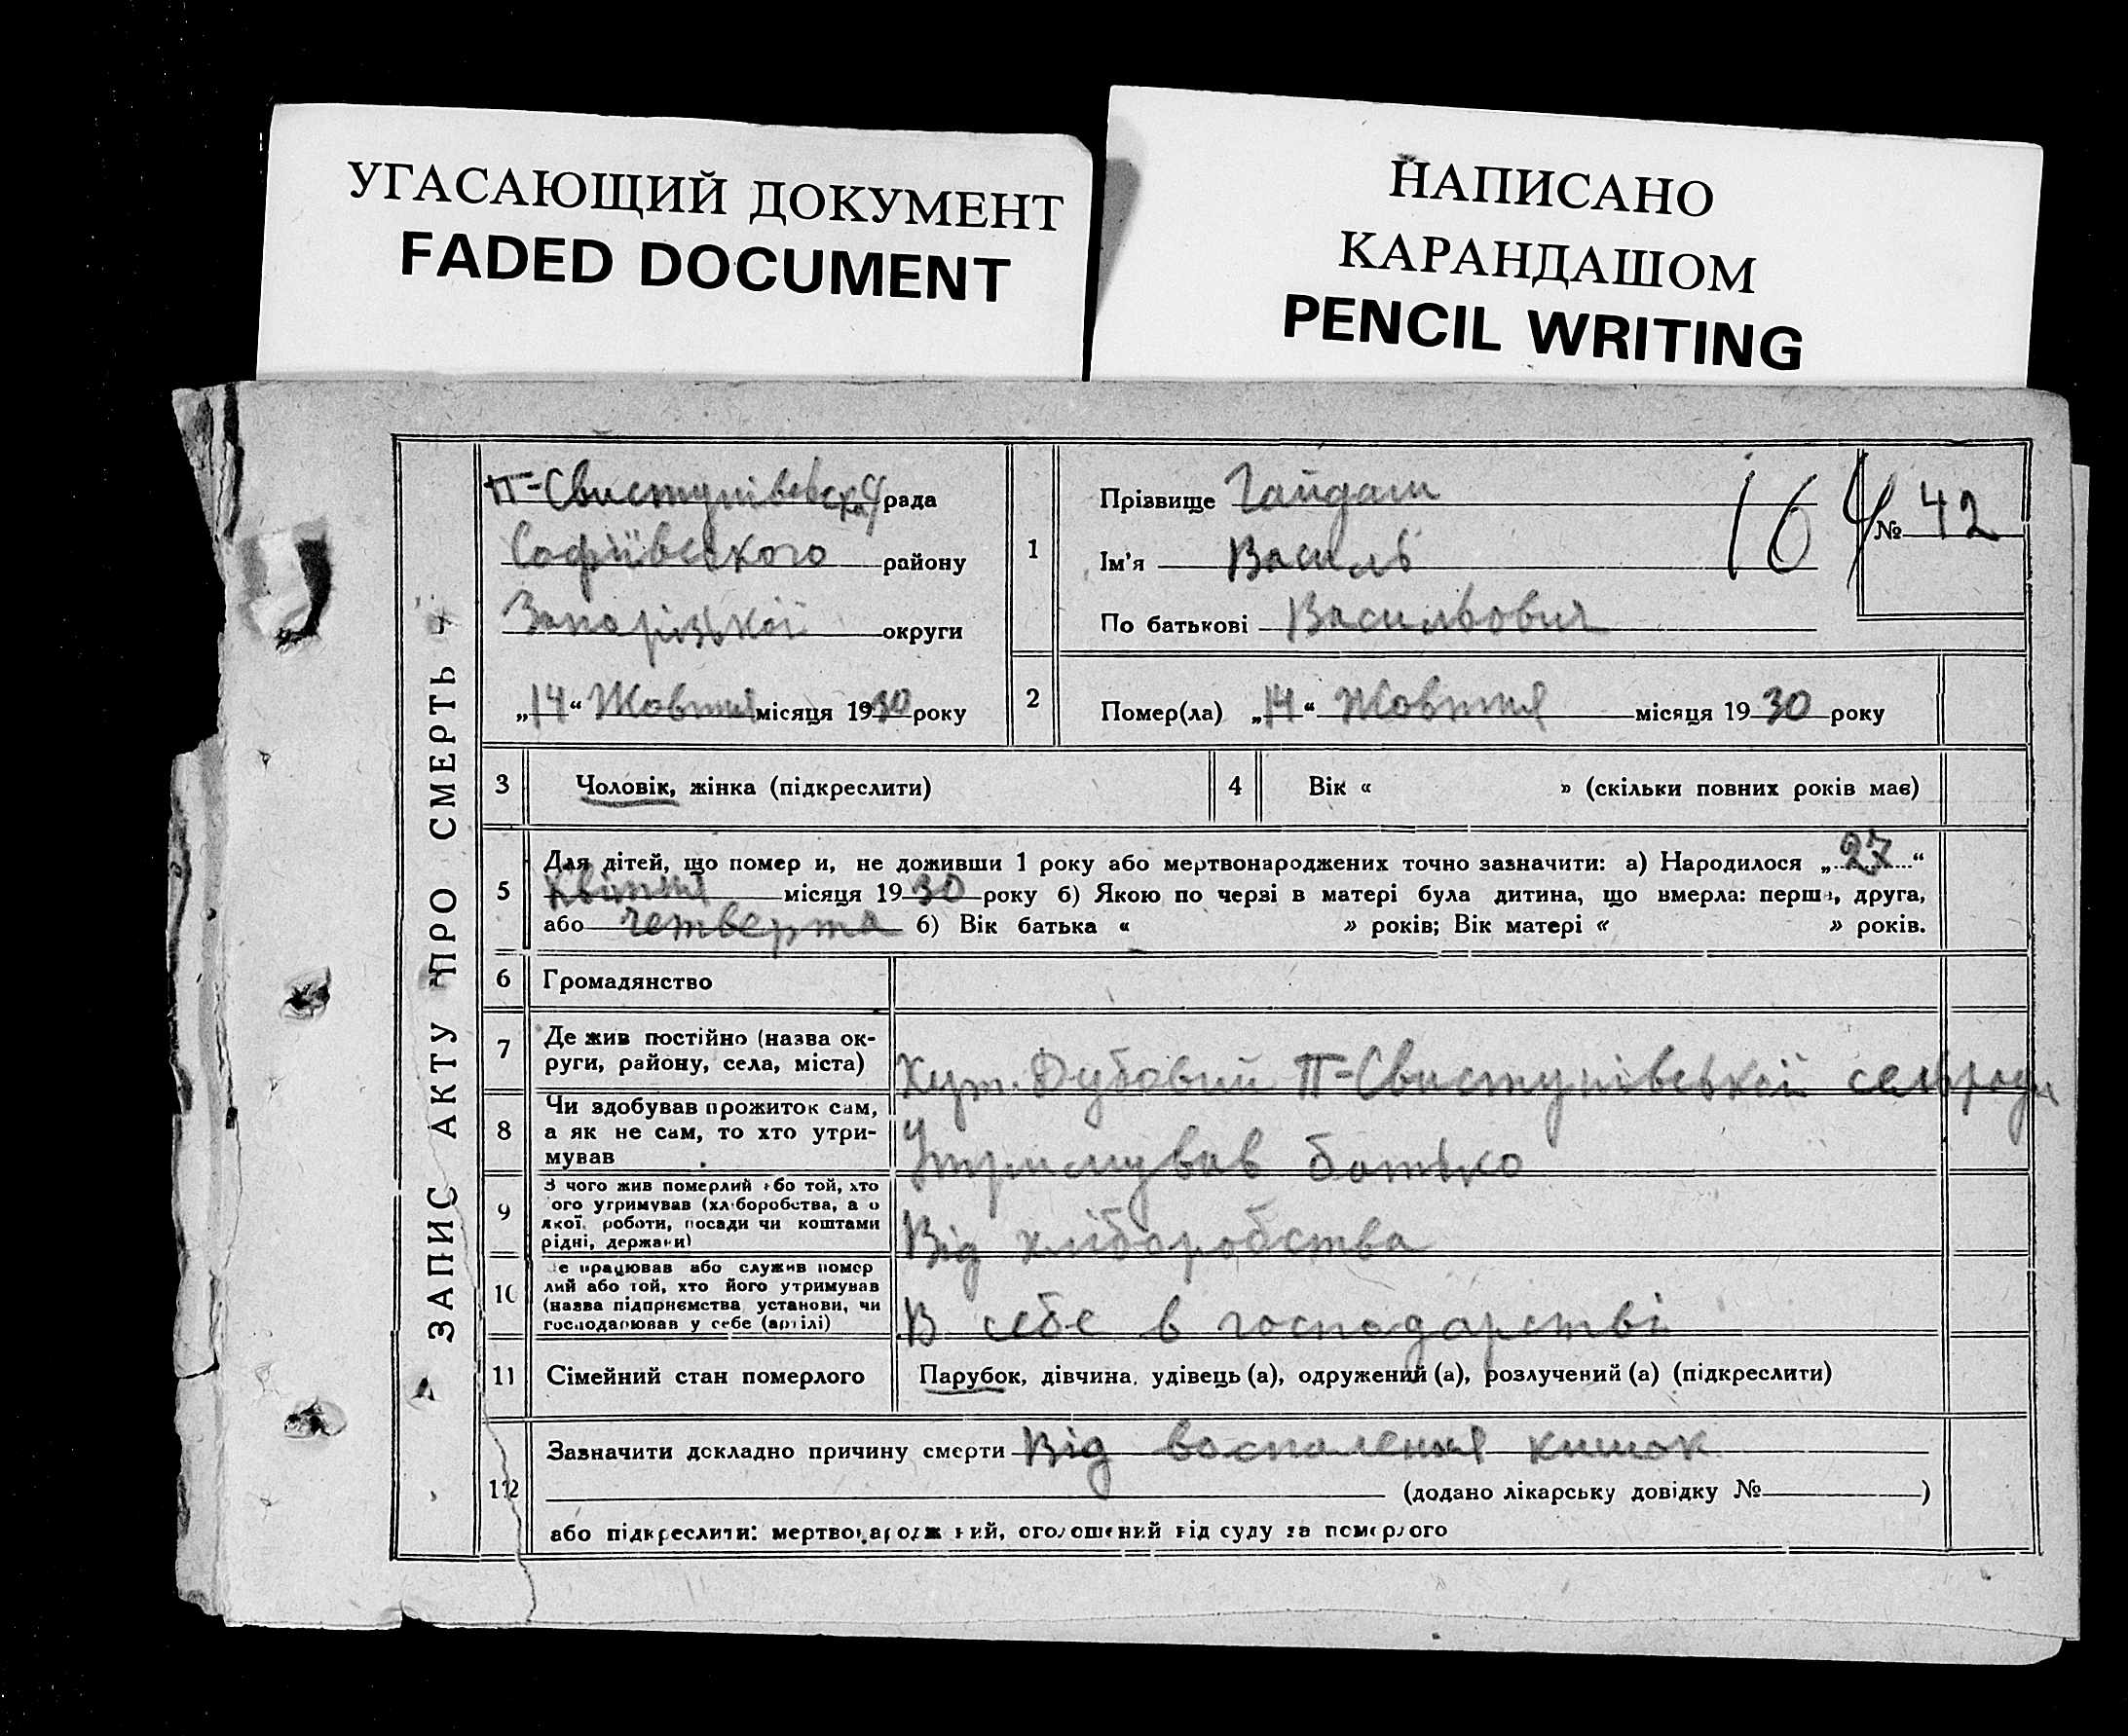 УГАСАЮЩИЙ ДОКУМЕНТ
FADED DOCUMENT
НАПИСАНО
КАРАНДАШОМ
PENCIL WRITING
ЗАПИС АКТУ ПРО СМЕРТЬ
П-Свистунівська рада
Софіївського района
Запорізької округи
„14“ Жовтня місяця 1930 року
1
Прізвище Гайдаш
Ім'я Василь
По батькові Васильович
164
№ 42
2
Помер(ла) „14“ Жовтня місяця 1930 року
3 Чоловік, жінка (підкреслити)
4 Вік « » (скільки повних років має)
5
Для дітей, що померли, не доживши 1 року або мертвонароджених точно зазначити: а) Народилося „27“
Квітня місяця 1930 року б) Якою по черзі в матері була дитина, що вмерла: перша, друга,
або четверта б) Вік батька « » років; Вік матері « » років.
6 Громадянство
7
Де жив постійно (назва ок-
руги, району, села, міста)
Хут. Дубовий П-Свистунівської сельради
8
Чи здобував прожиток сам,
а як не сам, то хто утри-
мував
Утримував батько
9
З чого жив померлий або той, хто
його утримував (хліборобства, а о
якої роботи, посади чи коштами
рідні, держави)
Від хліборобства
10
Де працював або служив помер
лий або той, хто його утримував
(назва підприємства установи, чи
господарював у себе (артілі)
В себе в господарстві
11 Сімейний стан померлого
Парубок, дівчина, удівець (а), одружений (а), розлучений (а) (підкреслити)
12
Зазначити докладно причину смерти Від воспалення кишок
(додано лікарську довідку № )
або підкреслити: мертвонароджений, оголошений від суду за померлого